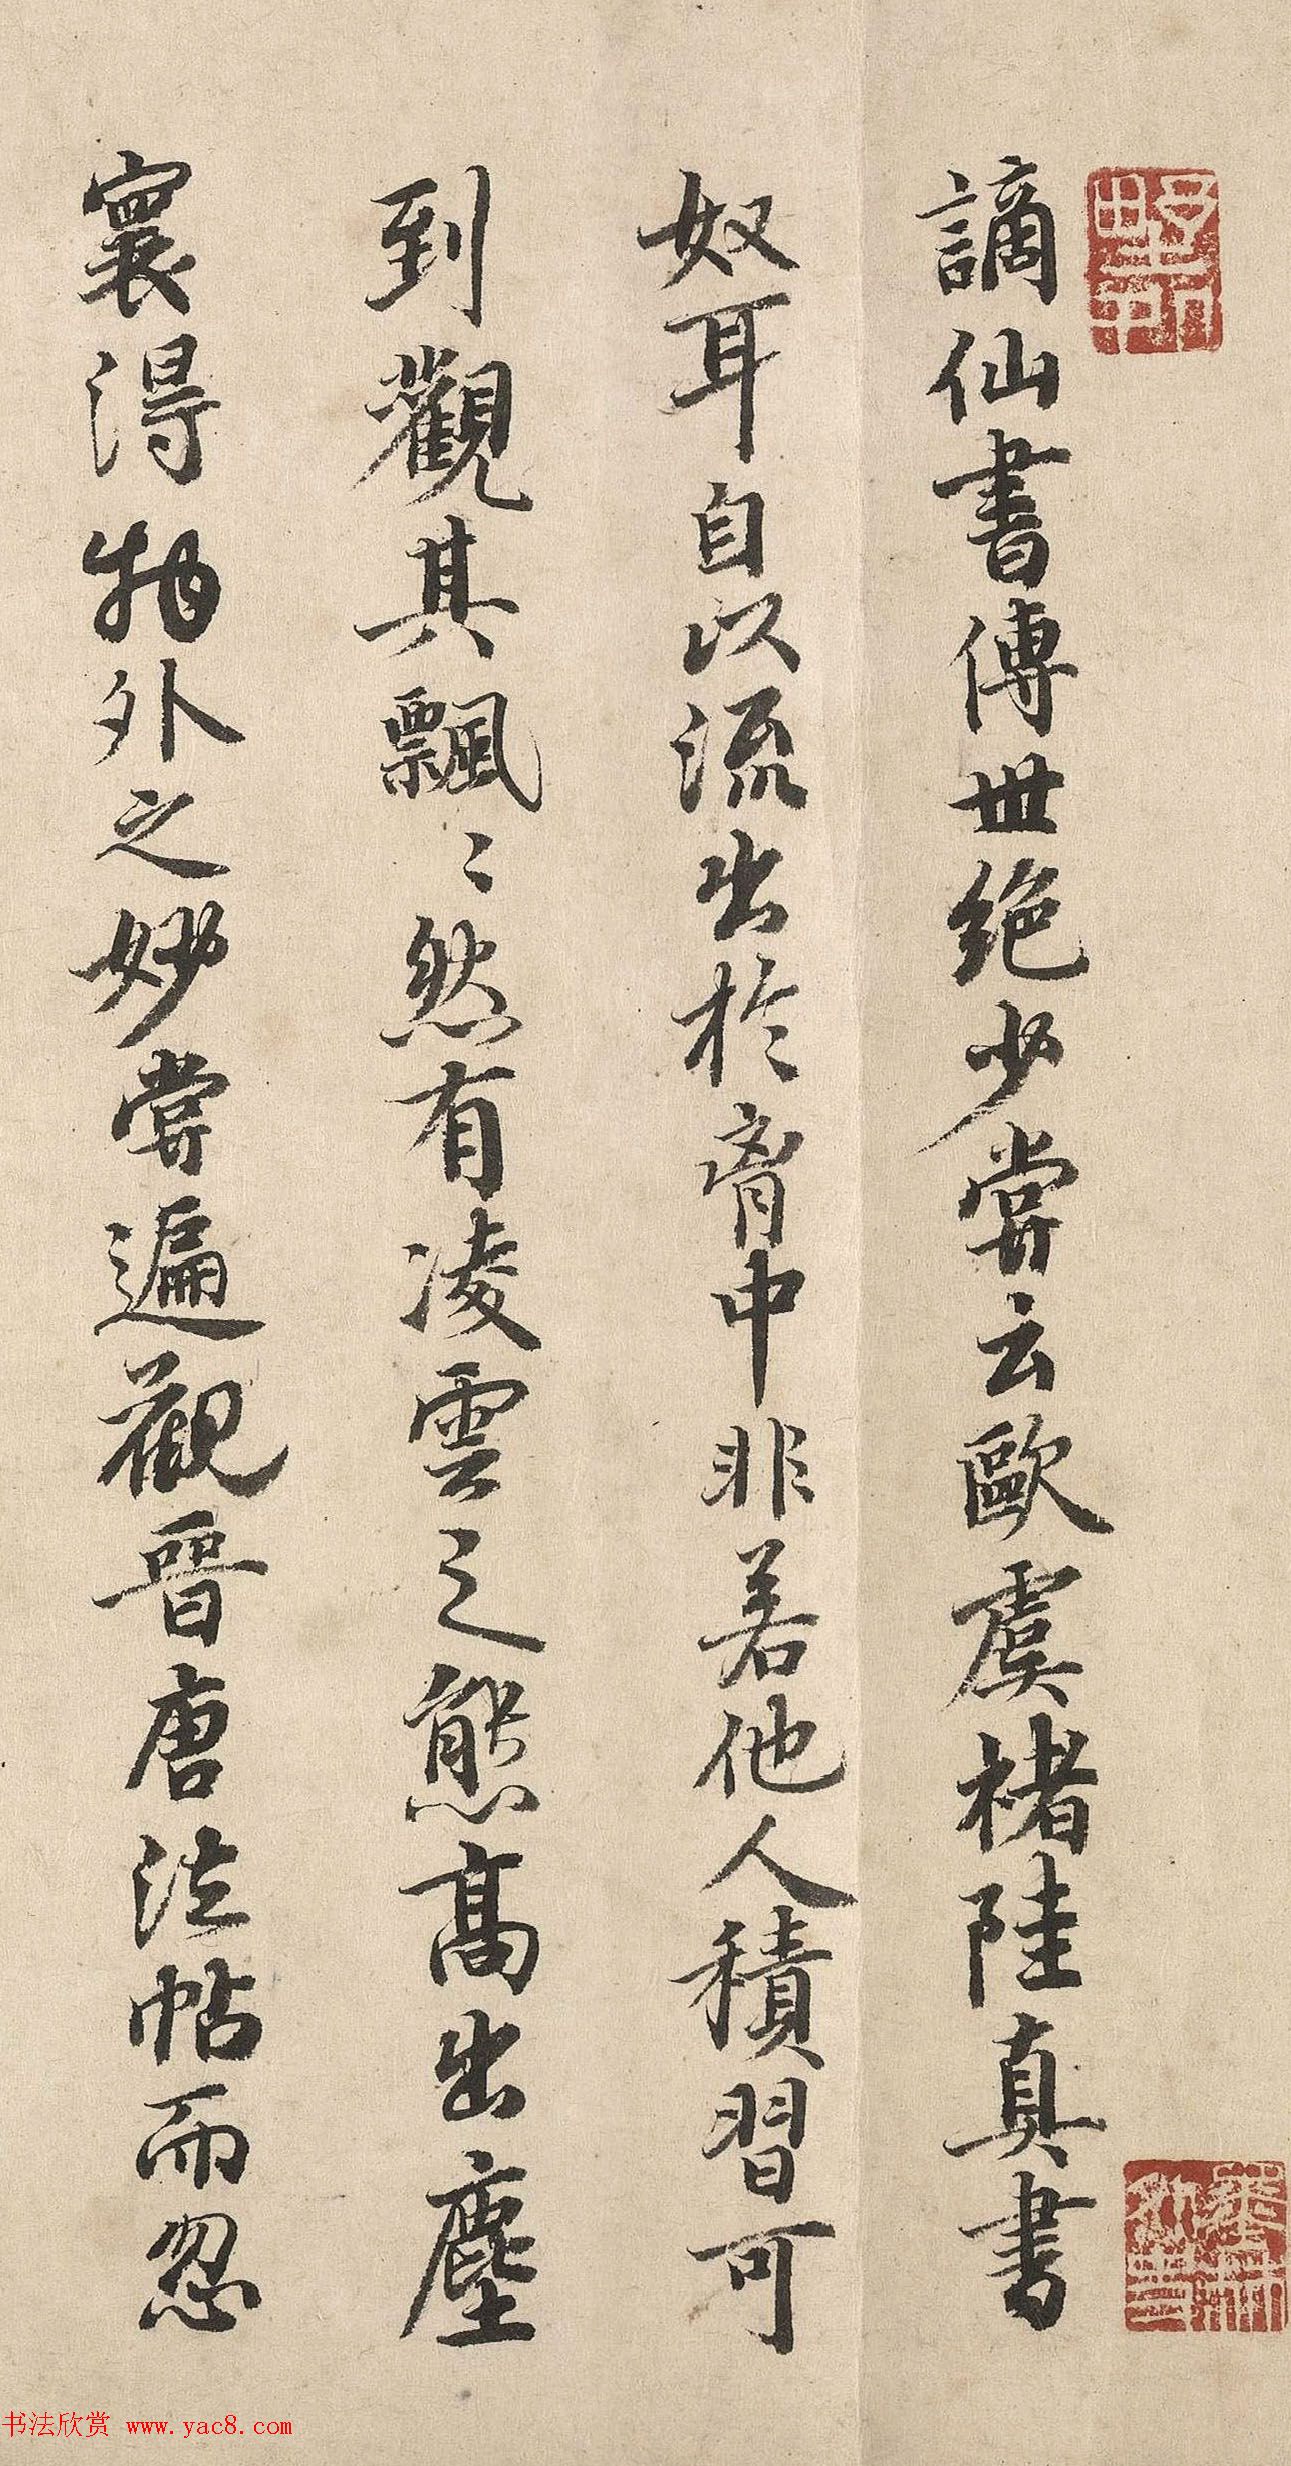 謫仙書傳世絕少嘗云歐虞褚陸真書
奴耳自以流出於胷中非若他人積習可
到觀其飄〻然有凌雲之態高出塵
寰得物外之妙嘗遍觀晉唐法帖而忽
书法欣赏 www.yac8.com